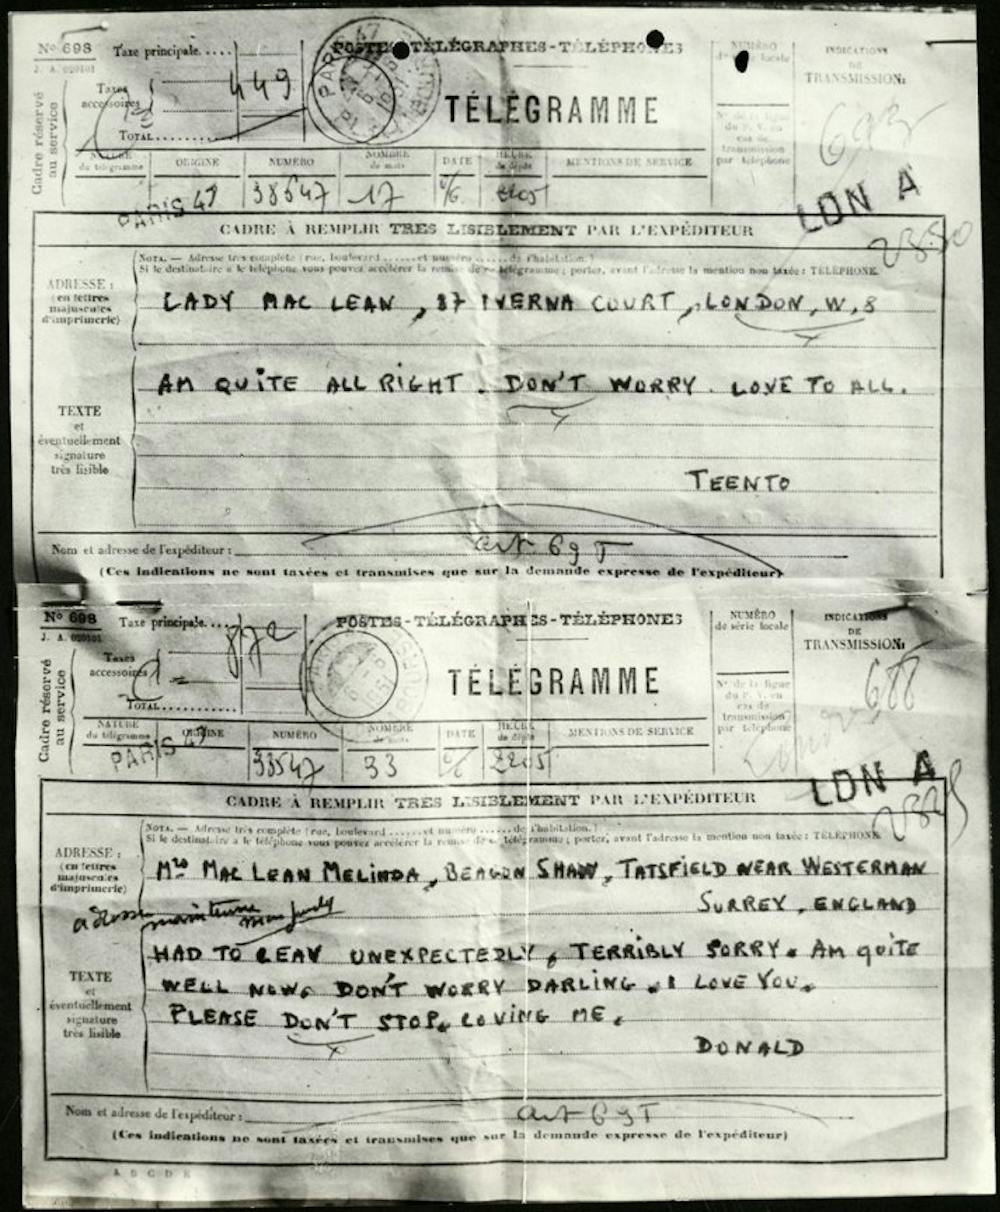 No 698
J. A. 020101
Taxe principale....
449
POSTES-TÉLÉGRAPHES-TÉLÉPHONES
NUMÉRO
de série locale
INDICATIONS
DE
TRANSMISSION:
Cadre réservé
au service
Taxes
accessoires
TÉLÉGRAMME
TOTAL............
N° de la ligne
du P. V. en
cas de
transmission
par téléphone
NATURE
du télégramme
ORIGINE
NUMÉRO
NOMBRE
de mots
DATE
HEURE
de dépôt
MENTIONS DE SERVICE
PARIS 47
38547
17
6/6
2205
LDN A
CADRE À REMPLIR TRES LISIBLEMENT PAR L'EXPÉDITEUR
NOTA. — Adresse très complète (rue, boulevard ......et numéro ......de l'habitation.)
Si le destinataire a le téléphone vous pouvez accélérer la remise de ce télégramme; porter, avant l'adresse la mention non taxée: TÉLÉPHONE.
ADRESSE :
(en lettres
majuscules
d'imprimerie)
LADY MAC LEAN, 87 IVERNA COURT, LONDON, W, 8
AM QUITE ALL RIGHT. DON'T WORRY. LOVE TO ALL.
TEXTE
et
éventuellement
signature
très lisible
TEENTO
Nom et adresse de l'expéditeur :
art 69T
(Ces indications ne sont taxées et transmises que sur la demande expresse de l'expéditeur)
No 698
J. A. 020101
Taxe principale....
872
POSTES-TÉLÉGRAPHES-TÉLÉPHONES
NUMÉRO
de série locale
INDICATIONS
DE
TRANSMISSION:
Cadre réservé
au service
Taxes
accessoires
TÉLÉGRAMME
TOTAL............
N° de la ligne
du P. V. en
cas de
transmission
par téléphone
688
NATURE
du télégramme
ORIGINE
NUMÉRO
NOMBRE
de mots
DATE
HEURE
de dépôt
MENTIONS DE SERVICE
PARIS 47
38547
33
6/6
2205
LDN A
CADRE À REMPLIR TRES LISIBLEMENT PAR L'EXPÉDITEUR
NOTA. — Adresse très complète (rue, boulevard ......et numéro ......de l'habitation.
Si le destinataire a le téléphone vous pouvez accélérer la remise de ce télégramme; porter, avant l'adresse la mention non taxée: TÉLÉPHONE
ADRESSE :
(en lettres
majuscules
d'imprimerie)
MRS MAC LEAN MELINDA, BEACON SHAW, TATSFIELD NEAR WESTERMAN
SURREY, ENGLAND
HAD TO LEAV UNEXPECTEDLY, TERRIBLY SORRY. AM QUITE
WELL NOW. DON'T WORRY DARLING. I LOVE YOU.
PLEASE DON'T STOP LOVING ME.
TEXTE
et
éventuellement
signature
très lisible
DONALD
Nom et adresse de l'expéditeur :
art 69T
(Ces indications ne sont taxées et transmises que sur la demande expresse de l'expéditeur)
A B C D E